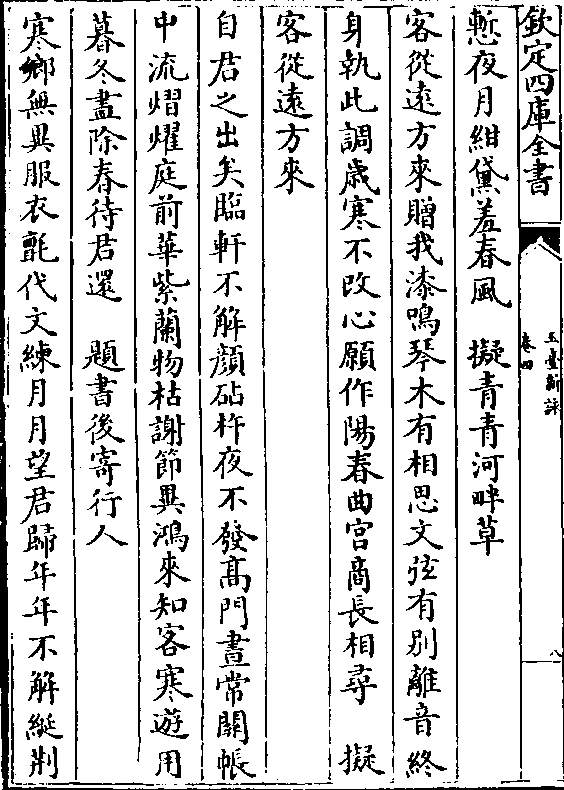 欽定四庫全書
玉臺新詠
卷四
八
慙夜月紺黛羞春風　擬青青河畔草
客從逺方來贈我漆鳴琴木有相思文弦有别離音終
身執此調嵗寒不改心願作陽春曲宫商長相尋　擬
客從逺方來
自君之出矣臨軒不解顔砧杵夜不發髙門晝常關帳
中流熠燿庭前華紫蘭物枯謝節異鴻來知客寒遊用
暮冬盡除春待君還　題書後寄行人
寒鄉無異服衣氈代文練月月望君歸年年不解綖荆